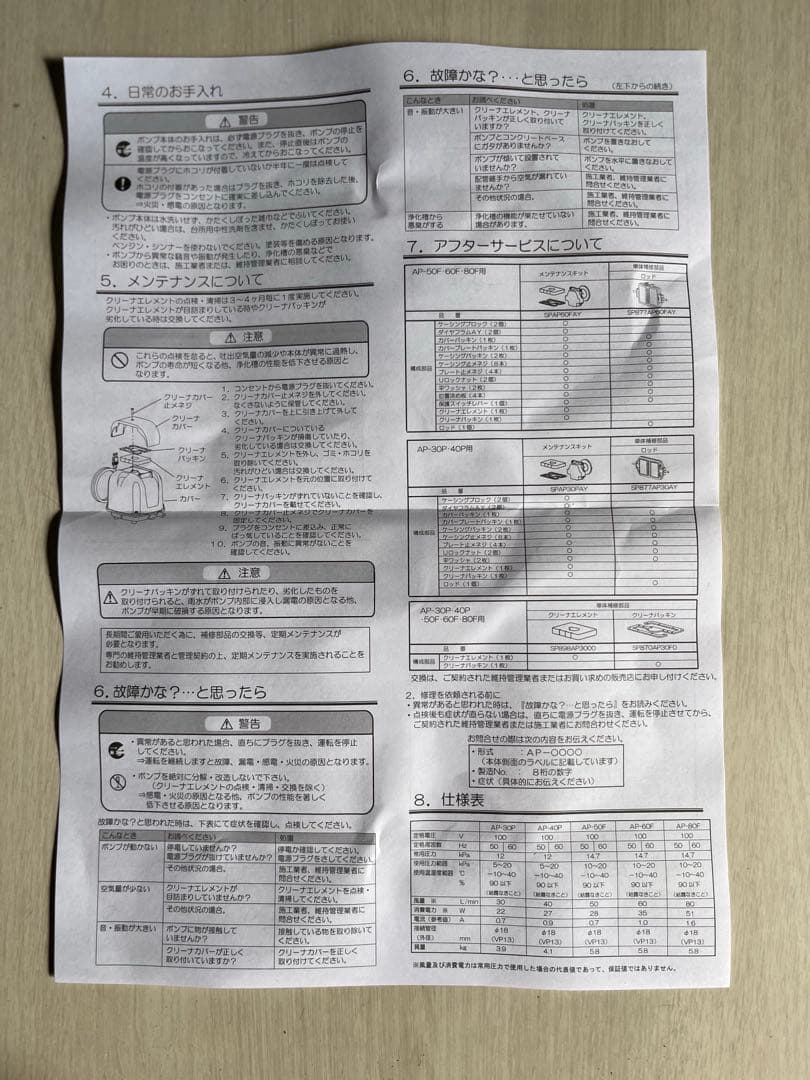 4．日常のお手入れ
⚠ 警告
ポンプ本体のお手入れは、必ず電源プラグを抜き、ポンプの停止を
確認してからおこなってください。また、停止直後はポンプの
温度が高くなっていますので、冷えてからおこなってください。
電源プラグにホコリが付着していないか半年に一度は点検して
ください。
ホコリの付着があった場合はプラグを抜き、ホコリを除去した後、
電源プラグをコンセントに確実に差し込んでください。
⇒火災・感電の原因となります。
・ポンプ本体は水洗いせず、かたくしぼった雑巾などでふいてください。
汚れがひどい場合は、台所用中性洗剤を含ませ、かたくしぼってお使い
ください。
ベンジン・シンナーを使わないでください。塗装等を傷める原因となります。
・ポンプから異常な騒音や振動が発生したり、浄化槽の悪臭などで
お困りのときは、施工業者または、維持管理業者に相談してください。
5．メンテナンスについて
クリーナエレメントの点検・清掃は3～4ヶ月毎に1度実施してください。
クリーナエレメントが目詰まりしている時やクリーナパッキンが
劣化している時は交換してください。
⚠ 注意
これらの点検を怠ると、吐出空気量の減少や本体が異常に過熱し、
ポンプの寿命が短くなる他、浄化槽の性能を低下させる原因と
なります。
クリーナカバー
止メネジ
クリーナ
カバー
クリーナ
パッキン
クリーナ
エレメント
カバー
1．コンセントから電源プラグを抜いてください。
2．クリーナカバー止メネジを外してください。
なくさないように保管してください。
3．クリーナカバーを上に引き上げて外して
ください。
4．クリーナカバーについている
クリーナパッキンが損傷していたり、
劣化している場合は交換してください。
5．クリーナエレメントを外し、ゴミ・ホコリを
取り除いてください。
汚れがひどい場合は交換してください。
6．クリーナエレメントを元の位置に取り付けて
ください。
7．クリーナパッキンがずれていないことを確認し、
クリーナカバーを載せてください。
8．クリーナカバー止メネジでクリーナカバーを
固定してください。
9．プラグをコンセントに差込み、正常に
ばっ気していることを確認してください。
10．ポンプの音、振動に異常がないことを
確認してください。
⚠ 注意
クリーナパッキンがずれて取り付けられたり、劣化したものを
取り付けられると、雨水がポンプ内部に浸入し漏電の原因となる他、
ポンプが早期に破損する原因となります。
長期間ご愛用いただく為に、補修部品の交換等、定期メンテナンスが
必要となります。
専門の維持管理業者と管理契約の上、定期メンテナンスを実施されることを
お勧めします。
6．故障かな？…と思ったら
⚠ 警告
・異常があると思われた場合、直ちにプラグを抜き、運転を停止
してください。
⇒運転を継続しますと故障、漏電・感電・火災の原因となります。
・ポンプを絶対に分解・改造しないで下さい。
（クリーナエレメントの点検・清掃・交換を除く）
⇒感電・火災の原因となる他、ポンプの性能を著しく
低下させる原因となります。
故障かな？と思われた時は、下表にて症状を確認し、点検してください。
こんなとき お調べください 処置
ポンプが動かない 停電していませんか？ 停電か確認してください。
電源プラグが抜けていませんか？ 電源プラグをさしてください。
その他状況の場合。 施工業者、維持管理業者に
問合せください。
空気量が少ない クリーナエレメントが クリーナエレメントを点検・
目詰まりしていませんか？ 清掃してください。
その他状況の場合 施工業者、維持管理業者に
問合せください。
音・振動が大きい ポンプに物が接触して 接触している物を取り除いて
いませんか？ ください。
クリーナカバーが正しく クリーナカバーを正しく
取り付いていますか？ 取り付けてください。
6．故障かな？…と思ったら （左下からの続き）
こんなとき お調べください 処置
音・振動が大きい クリーナエレメント、クリーナ クリーナエレメント、
パッキンが正しく取り付いて クリーナパッキンを正しく
いますか？ 取り付けてください。
ポンプとコンクリートベース ポンプを置きなおして
にガタがありませんか？ ください。
ポンプが傾いて設置されて ポンプを水平に置きなおして
いませんか？ ください。
配管継手から空気が漏れてい 施工業者、維持管理業者に
ませんか？ 問合せください。
その他状況の場合。 施工業者、維持管理業者に
問合せください。
浄化槽から 浄化槽の機能が果たせていない 施工業者、維持管理業者に
悪臭がする 場合があります。 問合せください。
7．アフターサービスについて
AP-50F・60F・80F用 メンテナンスキット 単体補修部品
ロッド
品 番 SPAP60FAY SP877AP60FAY
構成部品
ケーシングブロック（2個） ○
ダイヤフラムAY（2個） ○
カバーパッキン（1枚） ○ ○
カバープレートパッキン（1枚） ○ ○
ケーシングパッキン（2枚） ○ ○
ケーシング止メネジ（8本） ○ ○
プレート止メネジ（4本） ○ ○
Uロックナット（2個） ○ ○
平ワッシャ（2枚） ○ ○
位置決め板（4本） ○ ○
保護スイッチレバー（1個） ○ ○
クリーナエレメント（1枚） ○
クリーナパッキン（1枚） ○
ロッド（1個） ○
AP-30P・40P用 メンテナンスキット 単体補修部品
ロッド
品 番 SPAP30PAY SP877AP30AY
構成部品
ケーシングブロック（2個） ○
ダイヤフラムAY（2個） ○
カバーパッキン（1枚） ○ ○
カバープレートパッキン（1枚） ○ ○
ケーシングパッキン（2枚） ○ ○
ケーシング止メネジ（8本） ○ ○
プレート止メネジ（4本） ○ ○
Uロックナット（2個） ○ ○
平ワッシャ（2枚） ○ ○
クリーナエレメント（1枚） ○
クリーナパッキン（1枚） ○
ロッド（1個） ○
AP-30P・40P
・50F・60F・80F用
単体補修部品
クリーナエレメント クリーナパッキン
品 番 SP898AP3000 SP870AP30FD
構成部品 クリーナエレメント（1枚） ○
クリーナパッキン（1枚） ○
交換は、ご契約された維持管理業者またはお買い求めの販売店にお申し付けください。
2．修理を依頼される前に
・異常があると思われた時は、『故障かな？…と思ったら』をお読みください。
・点検後も症状が直らない場合は、直ちに電源プラグを抜き、運転を停止させてから、
ご契約された維持管理業者または施工業者にお問合わせください。
お問合せの際は次の内容をお伝えください。
・形式 ：AP-○○○○
（本体側面のラベルに記載しています）
・製造No. ：8桁の数字
・症状（具体的にお伝えください）
8．仕様表
AP-30P AP-40P AP-50F AP-60F AP-80F
定格電圧 V 100 100 100 100 100
定格周波数 Hz 50 60 50 60 50 60 50 60 50 60
常用圧力 kPa 12 12 14.7 14.7 14.7
使用圧力範囲 kPa 5～20 5～20 10～20 10～20 10～20
使用温湿度範囲 ℃ -10～40 -10～40 -10～40 -10～40 -10～40
% 90以下 90以下 90以下 90以下 90以下
（結露なきこと） （結露なきこと） （結露なきこと） （結露なきこと） （結露なきこと）
風量 ※ L/min 30 40 50 60 80
消費電力 ※ W 22 27 28 35 51
電流（参考値） A 0.7 0.9 0.7 1.0 1.6
接続管径 φ18 φ18 φ18 φ18 φ18
（外径） mm （VP13） （VP13） （VP13） （VP13） （VP13）
質量 kg 3.9 4.1 5.8 5.8 5.8
※風量及び消費電力は常用圧力で使用した場合の代表値であって、保証値ではありません。